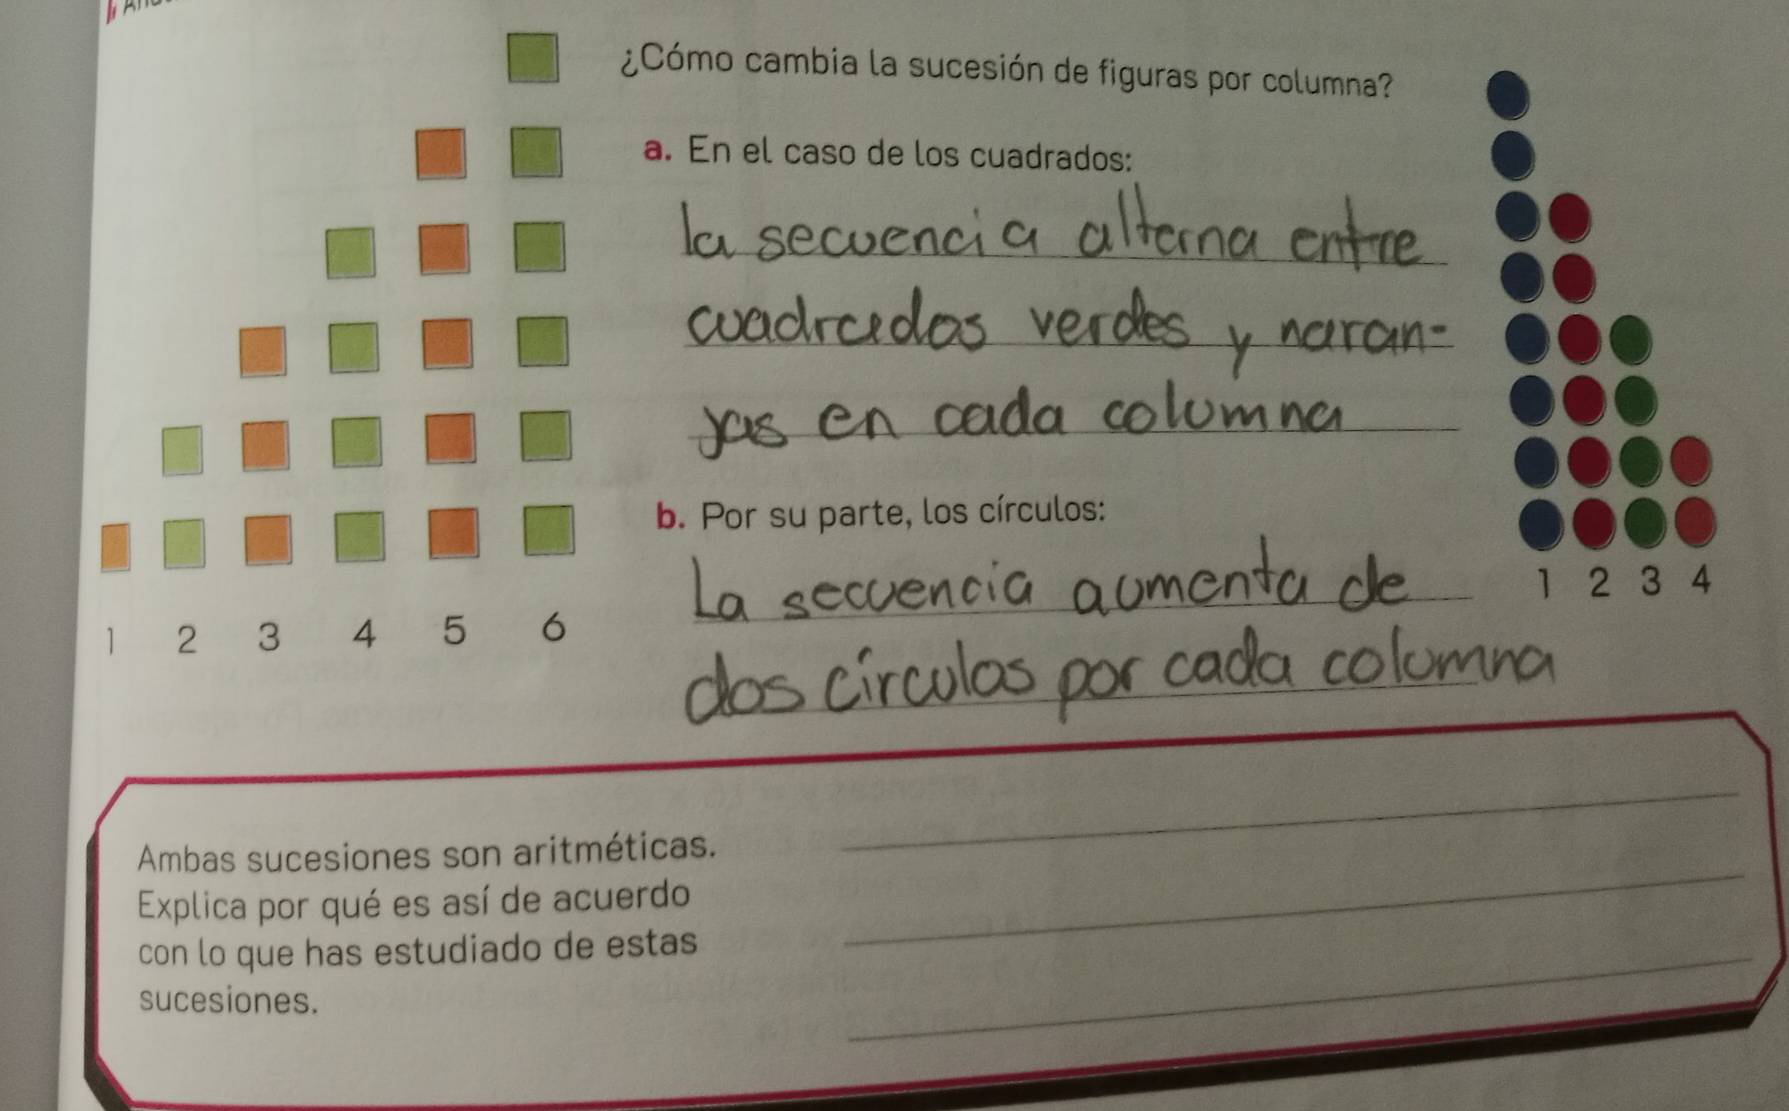 ¿Cómo cambia la sucesión de figuras por columna?
a. En el caso de los cuadrados:
la secuencia alterna entre
cuadrados verdes y naran-
jas en cada columna
b. Por su parte, los círculos:
La secuencia aumenta de
dos círculos por cada columna
1 2 3 4 5 6
1 2 3 4
Ambas sucesiones son aritméticas.
Explica por qué es así de acuerdo
con lo que has estudiado de estas
sucesiones.